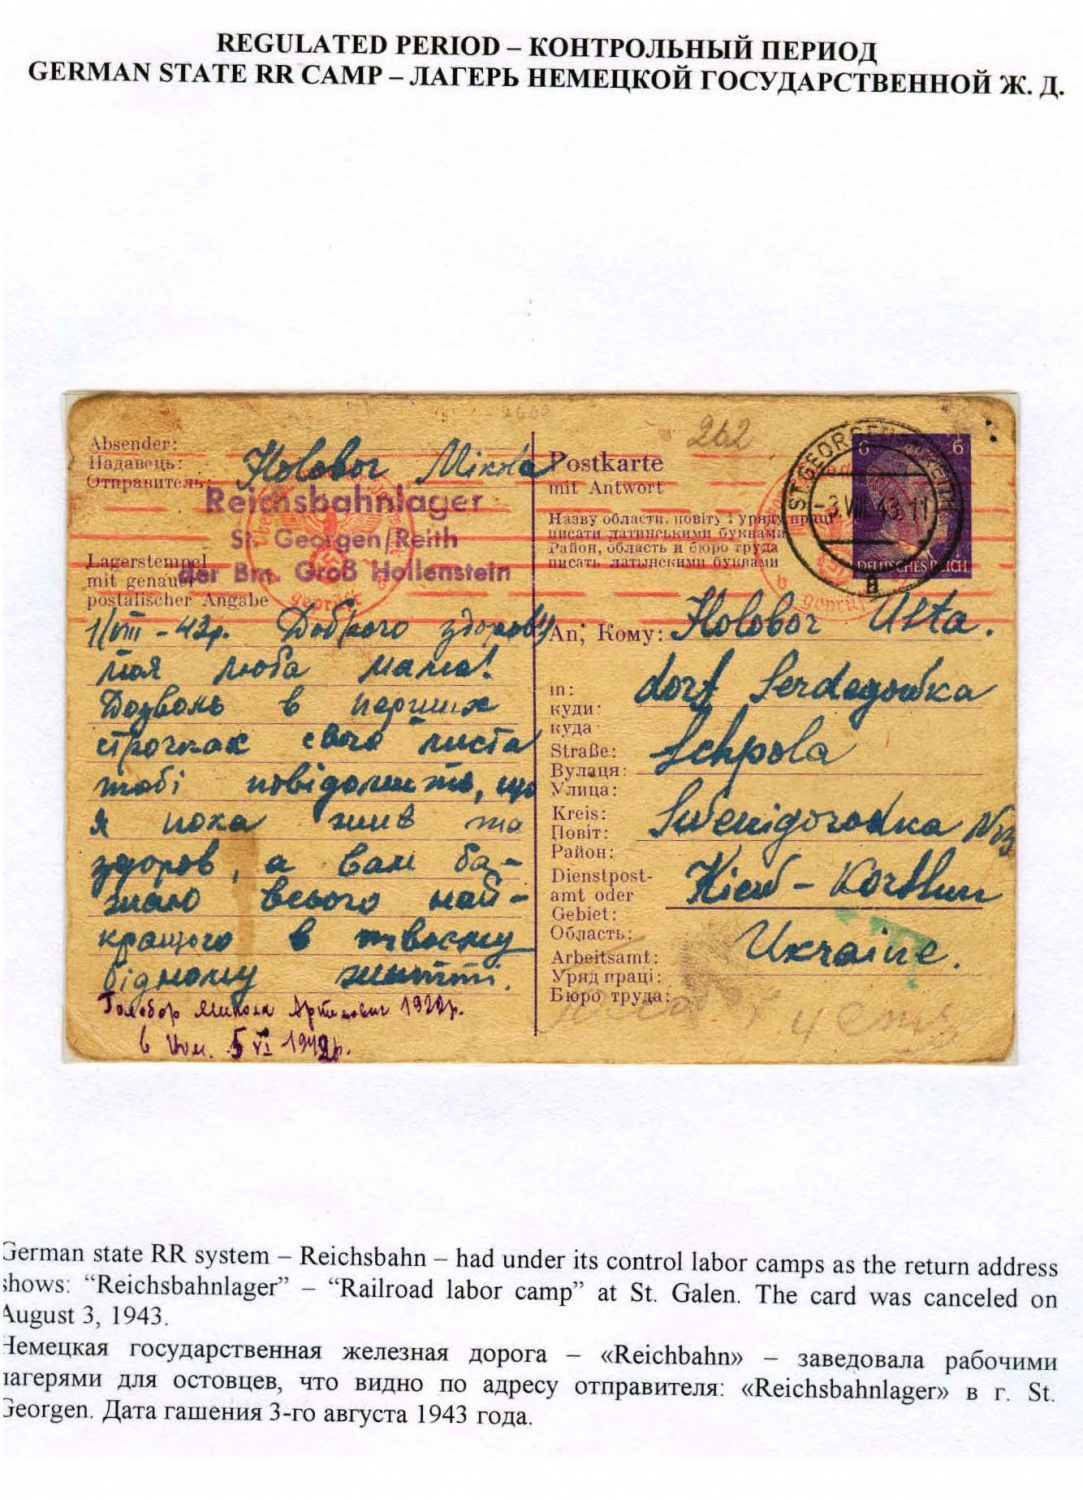 REGULATED PERIOD – КОНТРОЛЬНЫЙ ПЕРИОД
GERMAN STATE RR CAMP – ЛАГЕРЬ НЕМЕЦКОЙ ГОСУДАРСТВЕННОЙ Ж. Д.
262
Absender:
Надавець:
Отправитель:
Holobor Mikola
Reichsbahnlager
St. Georgen/Reith
der Bm. Groß Hollenstein
Lagerstempel
mit genauer
postalischer Angabe
geprüft
1/VIII – 43р. Доброго здоров'я
моя люба мамо!
Дозволь в перших
строчках свого листа
тобі повідомить, що
я пока жив та
здоров, а вам ба-
жаю всього най-
кращого в твоєму
бідному житті.
Голобор Микола Артемович
Postkarte
mit Antwort
Назву области, повіту і уряду праці
писати латинськими буквами
Район, область и бюро труда
писать латынскими буквами
6 6
DEUTSCHES REICH
ST. GEORGEN
-3.VIII.43.11
a
b geprüft
An, Кому: Holobor Usta.
in:
куди:
куда
dorf Serdegowka
Straße:
Вулаця:
Улица:
Schpola
Kreis:
Повіт:
Район:
Swenigorodka
Dienstpost-
amt oder
Gebiet:
Область:
Kiew – Korssun
Arbeitsamt:
Уряд праці:
Бюро труда:
Ukraine.
German state RR system – Reichsbahn – had under its control labor camps as the return address
shows: “Reichsbahnlager” – “Railroad labor camp” at St. Galen. The card was canceled on
August 3, 1943.
Немецкая государственная железная дорога – «Reichbahn» – заведовала рабочими
лагерями для остовцев, что видно по адресу отправителя: «Reichsbahnlager» в г. St.
Georgen. Дата гашения 3-го августа 1943 года.